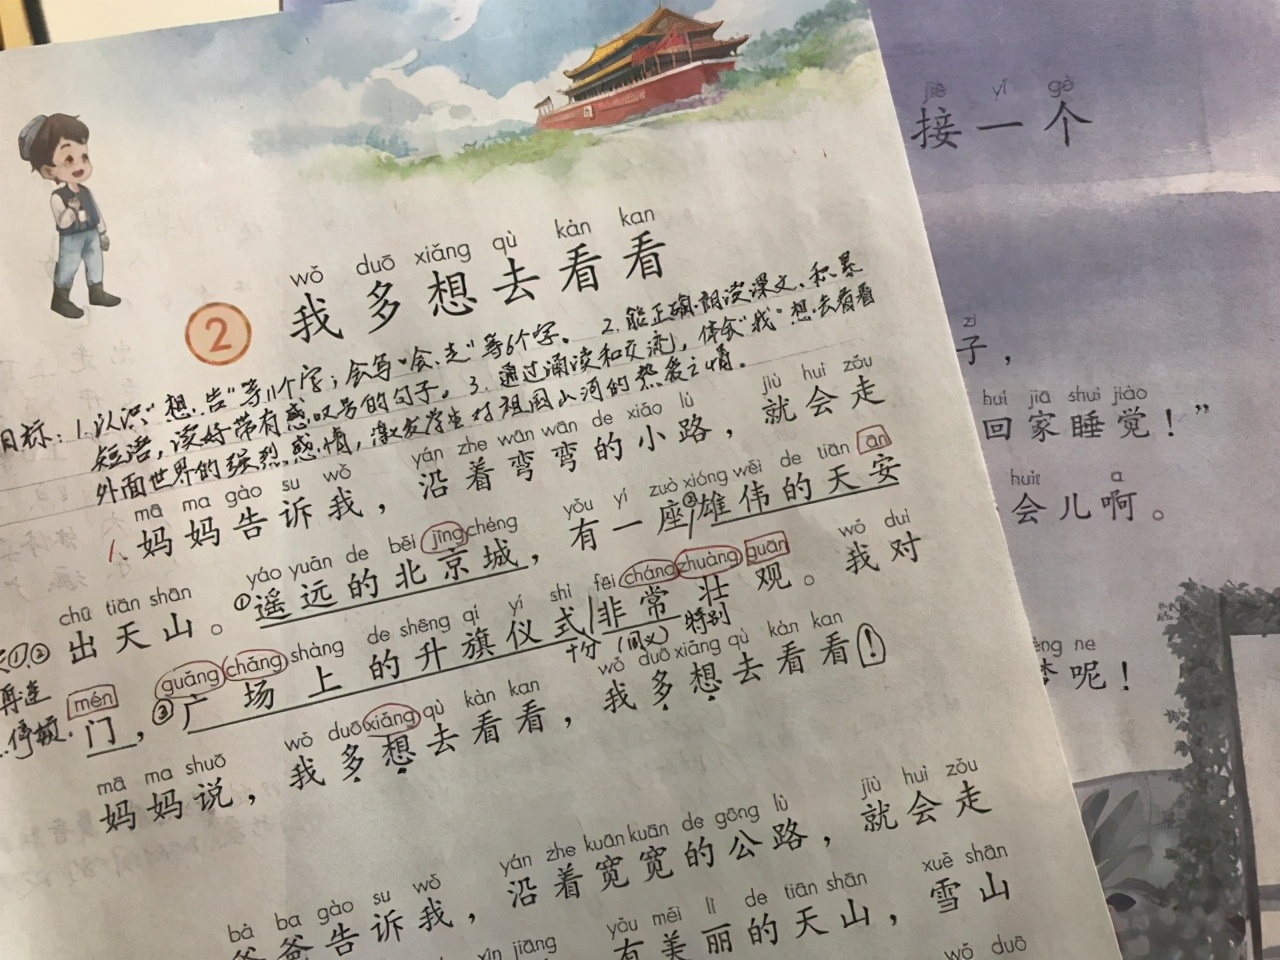 wǒ duō xiǎng qù kàn kan
2 我多想去看看
目标：1.认识“想、告”等11个字；会写“会、走”等6个字。2.能正确朗读课文、积累
短语，读好带有感叹号的句子。3.通过诵读和交流，体会“我”想去看看
外面世界的强烈感情，激发学生对祖国山河的热爱之情。
mā ma gào su wǒ yán zhe wān wān de xiǎo lù jiù huì zǒu
1.妈妈告诉我，沿着弯弯的小路，就会走
chū tiān shān yáo yuǎn de běi jīng chéng yǒu yí zuò xióng wěi de tiān ān
①②出天山。①遥远的北京城，有一座②雄伟的天安
再连
停顿
mén guǎng chǎng shàng de shēng qí yí shì fēi cháng zhuàng guān wǒ duì
门，③广场上的升旗仪式/非常壮观。我对
十分（同义）特别
mā ma shuō wǒ duō xiǎng qù kàn kan wǒ duō xiǎng qù kàn kan
妈妈说，我多想去看看，我多想去看看！
bà ba gào su wǒ yán zhe kuān kuān de gōng lù jiù huì zǒu
爸爸告诉我，沿着宽宽的公路，就会走
xīn jiāng yǒu měi lì de tiān shān xuě shān
有美丽的天山，雪山
wǒ duō
jiē yí gè
接一个
zi
子，
huí jiā shuì jiào
回家睡觉！”
huìr a
会儿啊。
ne
呢！